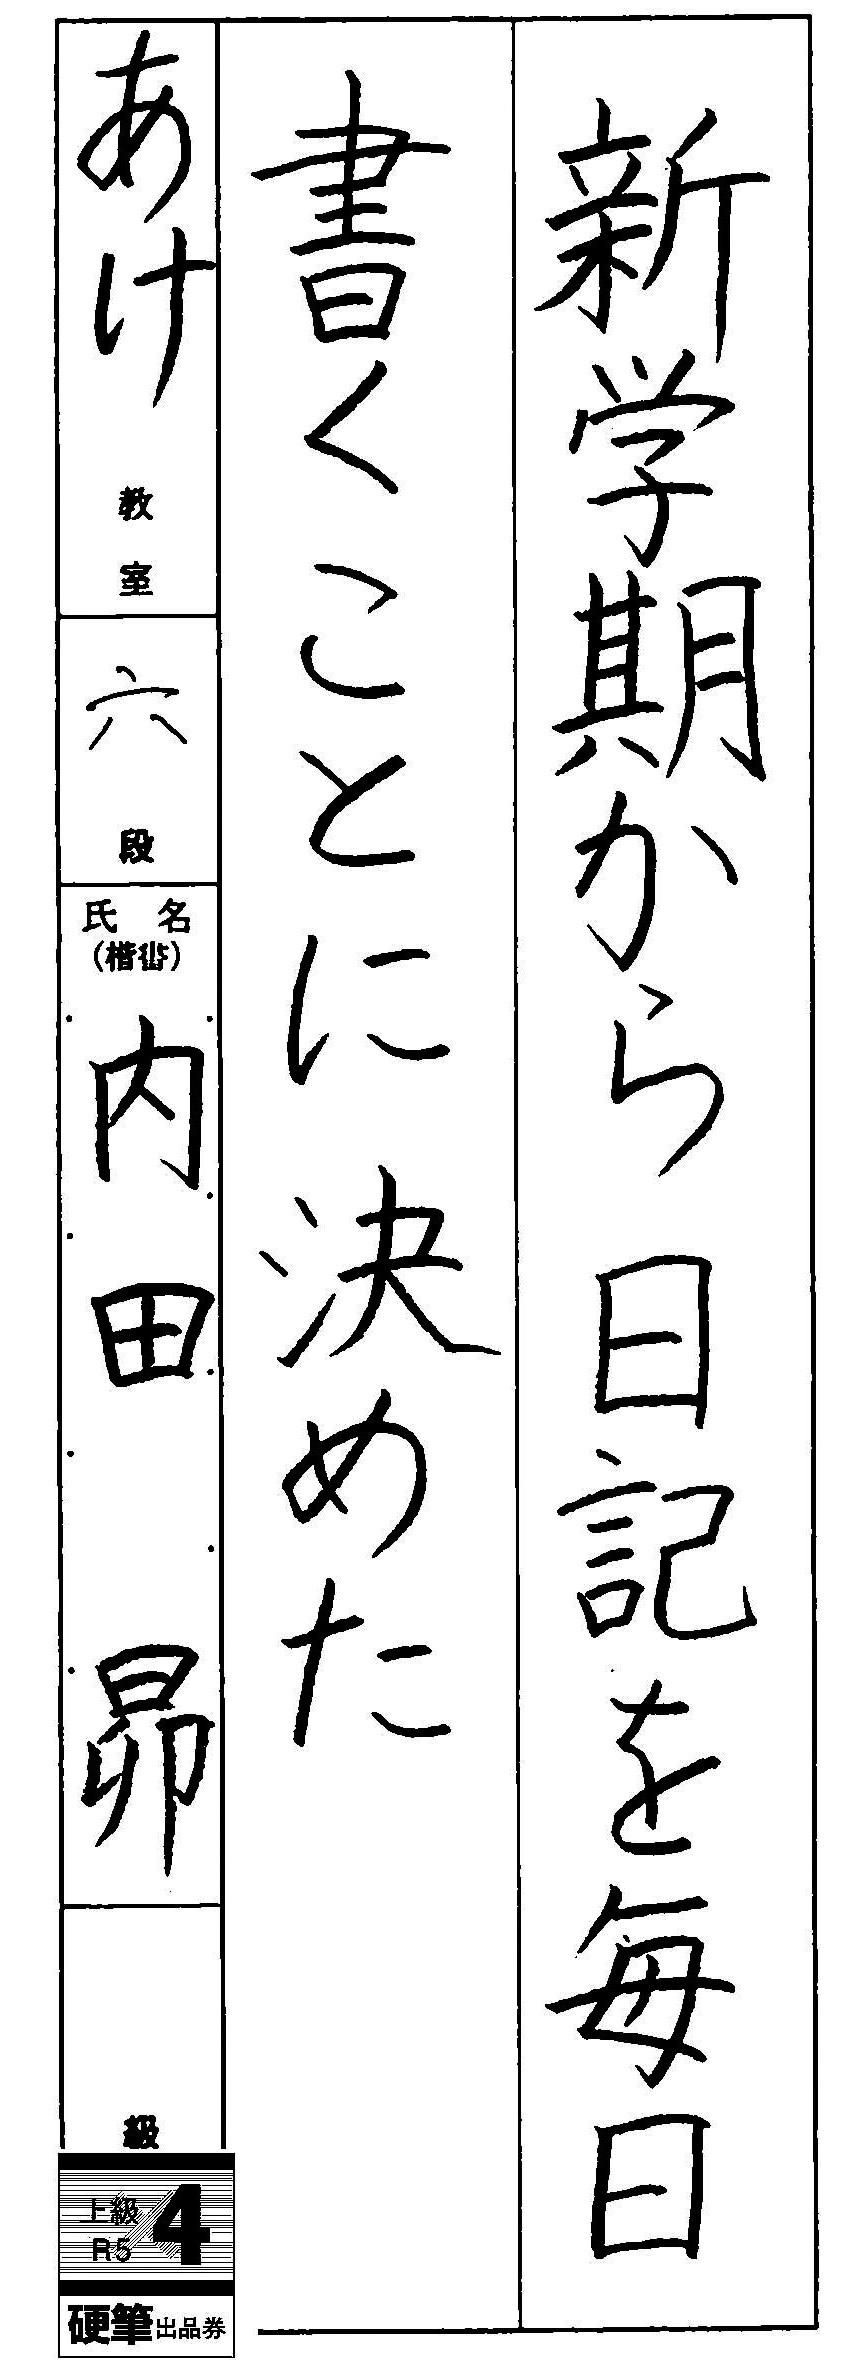 新学期から日記を毎日
書くことに決めた
あけ教室
六段
氏名
(楷書)
内田昴
級
上級
R5
4
硬筆出品券